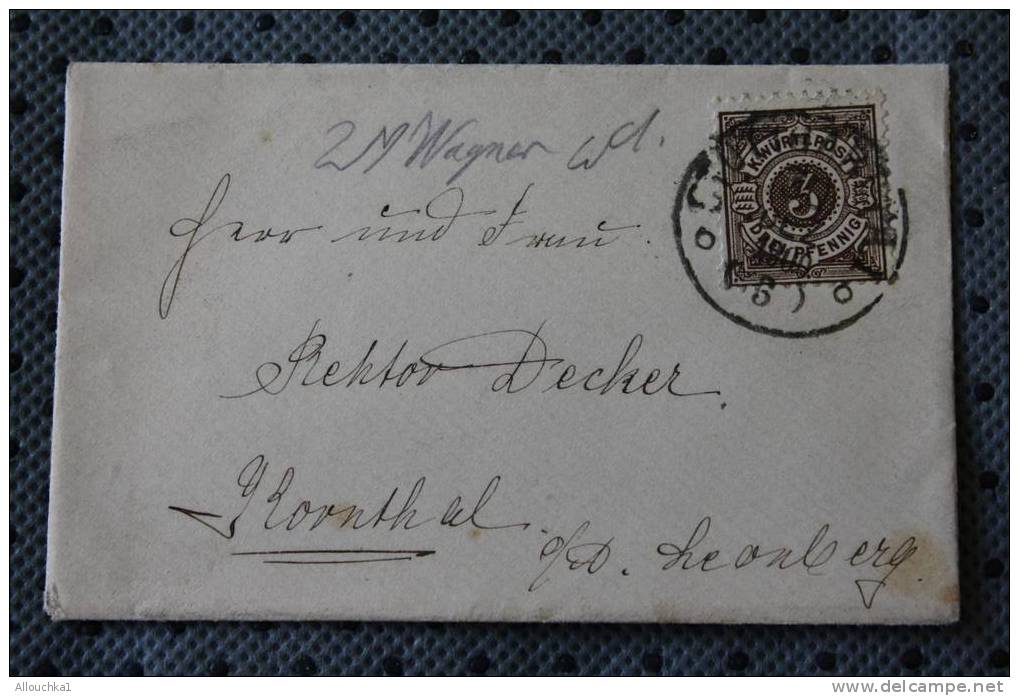 Wagner
K. WÜRTT. POST
3
DREI PFENNIG
Herr und Frau.
Rektor Decker.
Kornthal
O/A. Leonberg.
Allouchka1
http://www.delcampe.net